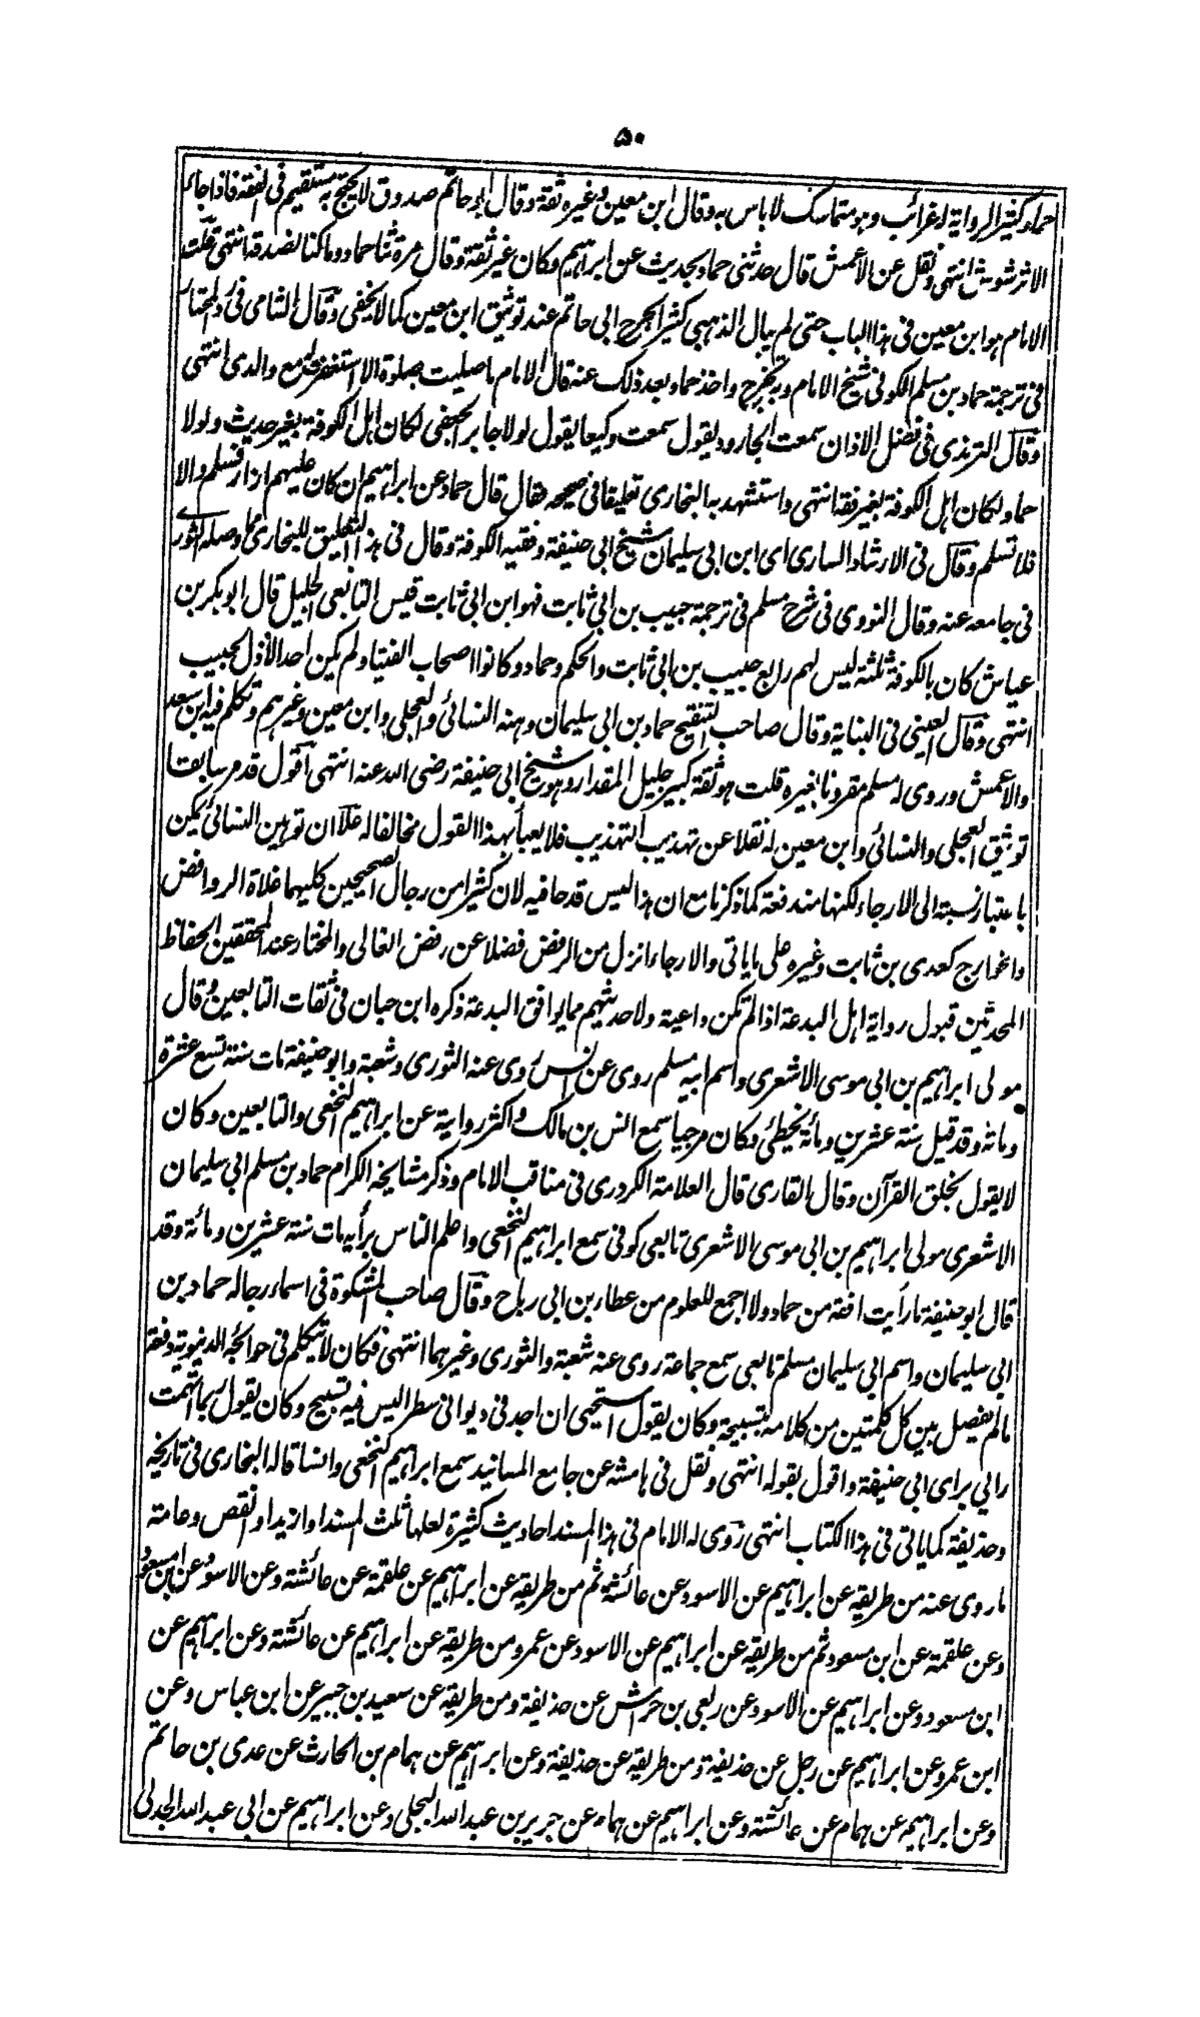 ۵۰
حماد كثير الرواية له غرائب وهو متماسك لا باس به وقال ابن معين وغيره ثقة وقال ابو حاتم صدوق لا يحتج به مستقيم في الفقه فاذا جاء
الاثر شوش انتهى ونقل عن الاعمش قال حدثني حماد بحديث عن ابراهيم وكان غير ثقة وقال مرة ثنا حماد وما كنا نصدقه انتهى قلت
الامام هو ابن معين في هذا الباب حتى لم يبال الذهبي كثير الجرح ابي حاتم عند توثيق ابن معين كما لا يخفى وقال الشامي في رد المحتار
في ترجمة حماد بن مسلم الكوفي شيخ الامام وبه تخرج واخذ حماد بعد ذلك عنه قال الامام ما صليت صلوة الا استغفرت له مع والدي انتهى
وقال الترمذي في فضل الاذان سمعت الجارود يقول سمعت وكيعا يقول لولا جابر الجعفي لكان اهل الكوفة بغير حديث ولولا
حماد لكان اهل الكوفة بغير فقه انتهى واستشهد به البخاري تعليقا في صحيحه فقال قال حماد عن ابراهيم ان كان عليهم ازار فسلم والا
فلا تسلم وقال في الارشاد الساري اي ابن ابي سليمان شيخ ابي حنيفة وفقيه الكوفة وقال في هذا التعليق للبخاري مما وصله الثوري
في جامعه عنه وقال النووي في شرح مسلم في ترجمة حبيب بن ابي ثابت فهو ابن ابي ثابت قيس التابعي الجليل قال ابو بكر بن
عياش كان بالكوفة ثلثة ليس لهم رابع حبيب بن ابي ثابت والحكم وحماد وكانوا اصحاب الفتيا ولم يكن احد الا ذل لحبيب
انتهى وقال العيني في البناية وقال صاحب التنقيح حماد بن ابي سليمان وهنه النسائي والعجلي وابن معين وغيرهم وتكلم فيه ابن سعد
والاعمش وروى له مسلم مقرونا بغيره قلت هو ثقة كبير جليل المقدار وهو شيخ ابي حنيفة رضي الله عنه انتهى اقول قد مر سابقا
توثيق العجلي والنسائي وابن معين له نقلا عن تهذيب التهذيب فلا يعبأ بهذا القول مخالفا له علا ان توهين النسائي يمكن
باعتبار نسبته الى الارجاء لكنها مندفعة كما ذكرنا مع ان هذا ليس قدحا فيه لان كثيرا من رجال الصحيحين كليهما غلاة الروافض
والخوارج كعدي بن ثابت وغيره على ما ياتي والارجاء انزل من الرفض فضلا عن رفض الغالي والمختار عند المحققين الحفاظ
المحدثين قبول رواية اهل البدعة اذا لم تكن داعية ولا حديثهم مما يوافق البدعة ذكره ابن حبان في ثقات التابعين وقال
مولى ابراهيم بن ابي موسى الاشعري واسم ابيه مسلم روى عن انس روى عنه الثوري وشعبة وابو حنيفة مات سنة تسع عشرة
ومائة وقد قيل سنة عشرين ومائة يخطئ وكان مرجيا سمع انس بن مالك واكثر رواية عن ابراهيم النخعي والتابعين وكان
لا يقول بخلق القرآن وقال القاري قال العلامة الكردري في مناقب الامام وذكر مشايخه الكرام حماد بن مسلم ابي سليمان
الاشعري مولى ابراهيم بن ابي موسى الاشعري تابعي كوفي سمع ابراهيم النخعي واعلم الناس برأيه مات سنة عشرين ومائة وقد
قال ابو حنيفة ما رأيت افقه من حماد ولا اجمع للعلوم من عطاء بن ابي رباح وقال صاحب المشكوة في اسماء رجاله حماد بن
ابي سليمان واسم ابي سليمان مسلم تابعي سمع جماعة روى عنه شعبة والثوري وغيرهما انتهى فكان لا يتكلم في حوائجه الدنيوية دفعة
ما لم يفصل بين كل كلمتين من كلامه بتسبيحة وكان يقول استحيي ان اجد في ديواني سطرا ليس فيه تسبيح وكان يقول ربما اتهمت
رايي براي ابي حنيفة واقول بقوله انتهى ونقل في هامشه عن جامع المسانيد سمع ابراهيم النخعي وانسا قاله البخاري في تاريخه
وحذيفة كما ياتي في هذا الكتاب انتهى روى له الامام في هذا المسند احاديث كثيرة لعلها ثلث المسند او ازيد او انقص وعامة
ما روى عنه من طريقه عن ابراهيم عن الاسود عن عائشة ثم من طريقه عن ابراهيم عن علقمة عن عائشة وعن الاسود عن ابن مسعود
وعن علقمة عن ابن مسعود ثم من طريقه عن ابراهيم عن الاسود عن عمر ومن طريقه عن ابراهيم عن عائشة وعن ابراهيم عن
ابن مسعود وعن ابراهيم عن الاسود عن ربعي بن حراش عن حذيفة ومن طريقه عن سعيد بن جبير عن ابن عباس وعن
ابن عمر وعن ابراهيم عن رجل عن حذيفة ومن طريقه عن حذيفة وعن ابراهيم عن همام بن الحارث عن عدي بن حاتم
وعن ابراهيم عن همام عن عائشة وعن ابراهيم عن همام عن جرير بن عبد الله البجلي وعن ابراهيم عن ابي عبد الله الجدلي